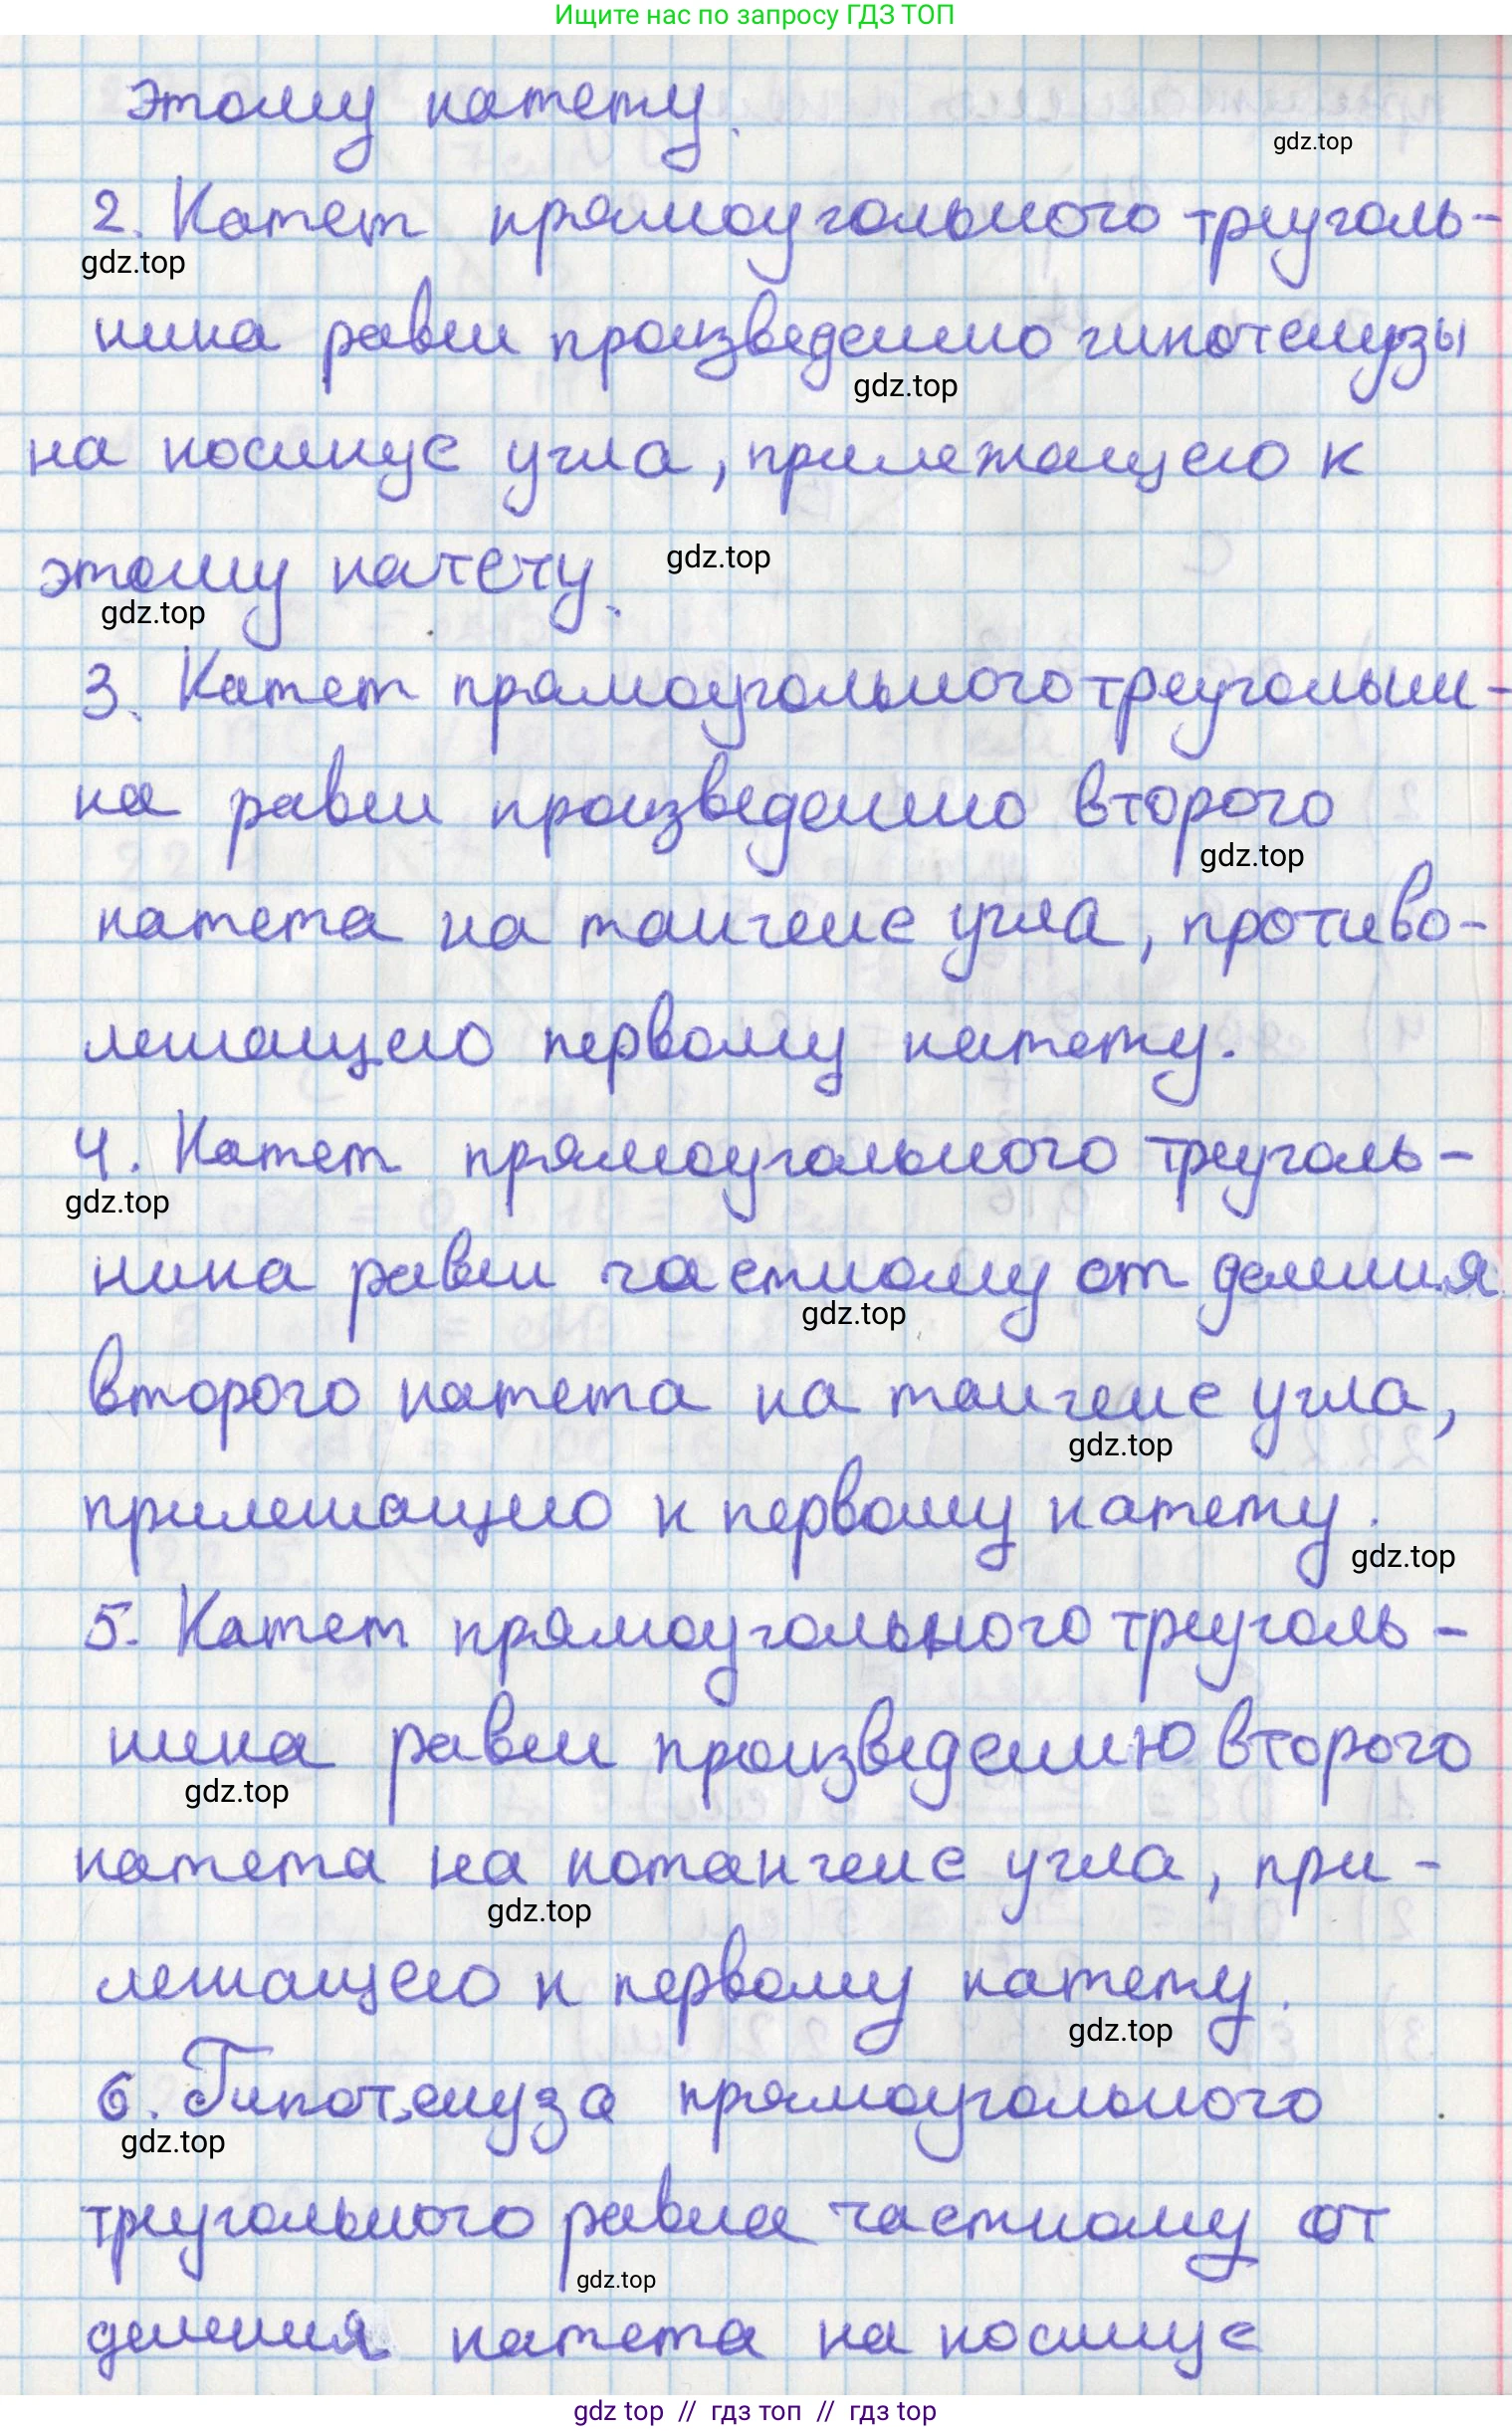 Ищите нас по запросу ГДЗ ТОП
этому катету.
gdz.top
2. Катет прямоугольного треуголь-
gdz.top
ника равен произведению гипотенузы
gdz.top
на косинус угла, прилежащего к
этому катету.
gdz.top
gdz.top
3. Катет прямоугольного треугольни-
ка равен произведению второго
gdz.top
катета на тангенс угла, противо-
лежащего первому катету.
4. Катет прямоугольного треуголь-
gdz.top
ника равен частному от деления
gdz.top
второго катета на тангенс угла,
gdz.top
прилежащего к первому катету.
gdz.top
5. Катет прямоугольного треуголь-
ника равен произведению второго
gdz.top
катета на котангенс угла, при-
gdz.top
лежащего к первому катету.
gdz.top
6. Гипотенуза прямоугольного
gdz.top
треугольного равна частному от
gdz.top
деления катета на косинус
gdz top // гдз топ // гдз top